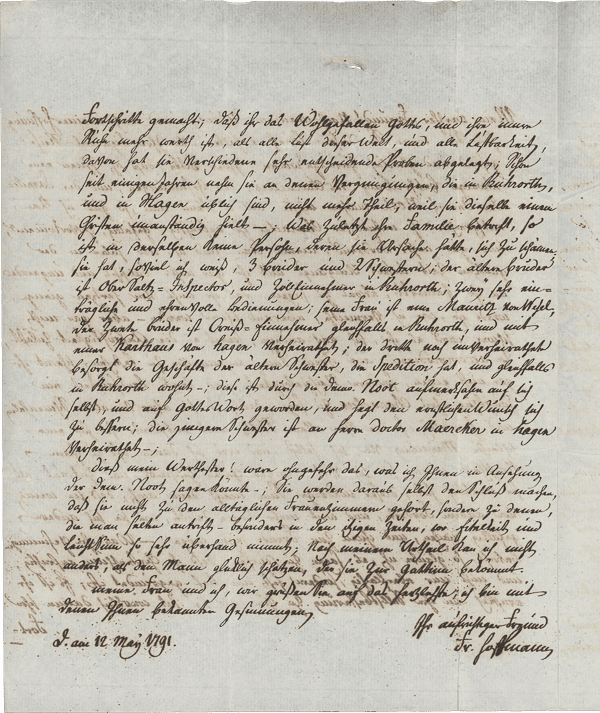 Fortschritte gemacht; daß ihr das Wohlgefallen Gottes, und ihre innre
Ruhe mehr werth ist, als alle Lust dieser Welt, und alle Lustbarkeiten,
davon hat sie verschiedene sehr entscheidende Proben abgelegt; Schon
seit einigen Jahren nahm sie an denen Vergnügungen, die in Ruhrorth,
und in Hagen üblich sind, nicht mehr theil, weil sie dieselbe einem
Christen unanständig hielt -; Was zuletzt ihre Familie betreft, so
ist in derselben keine Persohn, deren sie Ursache hätte, sich zu schämen,
sie hat, soviel ich weiß, 3 brüder und 2 Schwestern; der ältere bruder
ist Ober Saltz=Inspector, und Zolleinnehmer in Ruhrorth; zwey sehr ein=
trägliche und ehrenvolle bedienungen; seine Frau ist eine Mauritz von Wesel,
der zweite bruder ist Einnehmer gleichfalls in Ruhrorth, und mit
einer Karthaus von Hagen verheirathet; der dritte noch unverheirathet
besorgt die Geschäfte der ältern Schwester, die Spedition hat, und gleichfalls
in Ruhrorth wohnt -; diese ist durch die Dem. Noot aufmerksam auf sich
selbst, und auf Gottes Wort geworden, und hegt den ernstlichen Wunsch sich
zu bessern; die jüngere Schwester ist an Herrn Doctor Maercker in Hagen
verheirathet -;
dies mein Werthester! wäre ohngefehr das, was ich Ihnen in Ansehung
der Dem. Noot sagen könnte -; Sie werden daraus selbst den Schluß machen,
daß sie nicht zu den alltäglichen Frauenzimmern gehört, sondern zu denen,
die man selten antrift - besonders in den itzigen Zeiten, wo Eitelkeit und
Leichtsinn so sehr überhand nimmt; Nach meinem Urtheil kan ich nicht
anders, als den Mann glücklich schätzen, der sie zur Gattinn bekommt.
meine Frau und ich, wir grüßen Sie auf das herzlichste; ich bin mit
denen Ihnen bekannten Gesinnungen
Ihr aufrichtiger Freund
D. am 12 May 1791.
Fr. Hoffmann